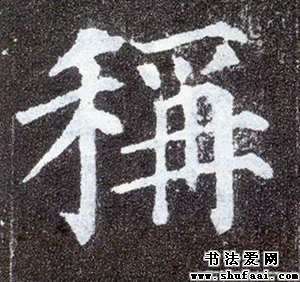 稱
书法爱网
www.shufaai.com